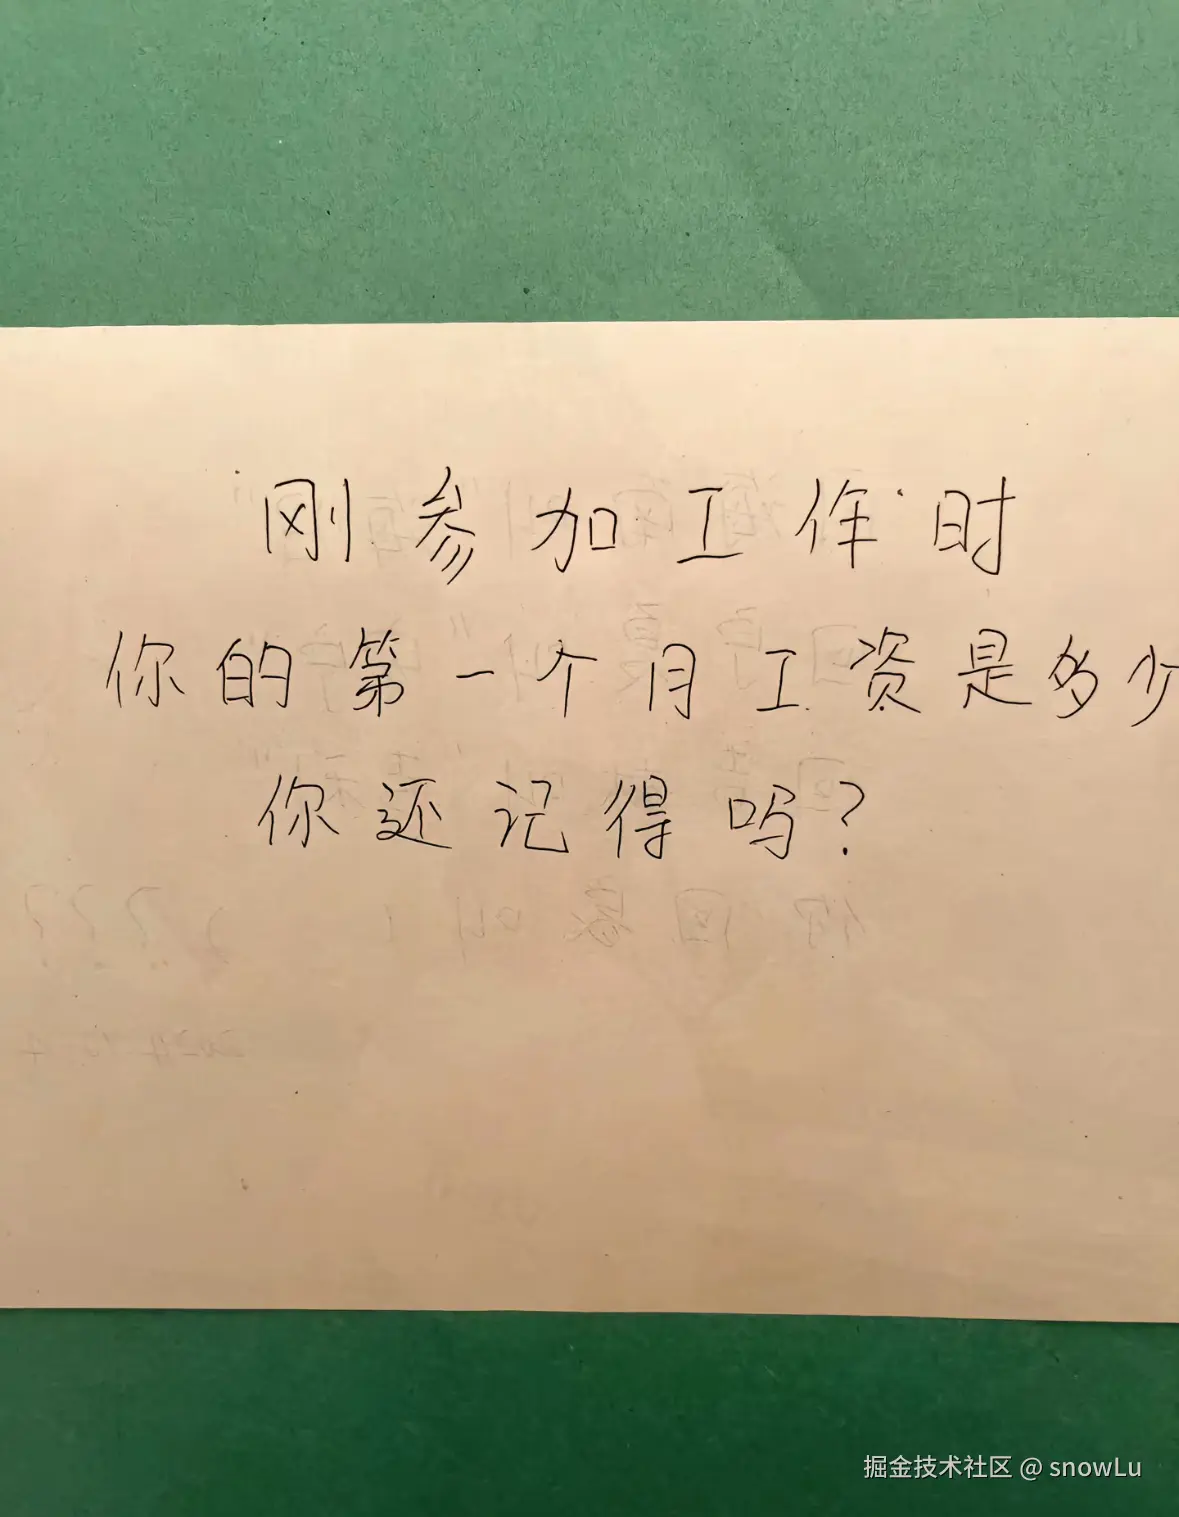 刚参加工作时
你的第一个月工资是多少
你还记得吗?
掘金技术社区 @ snowLu